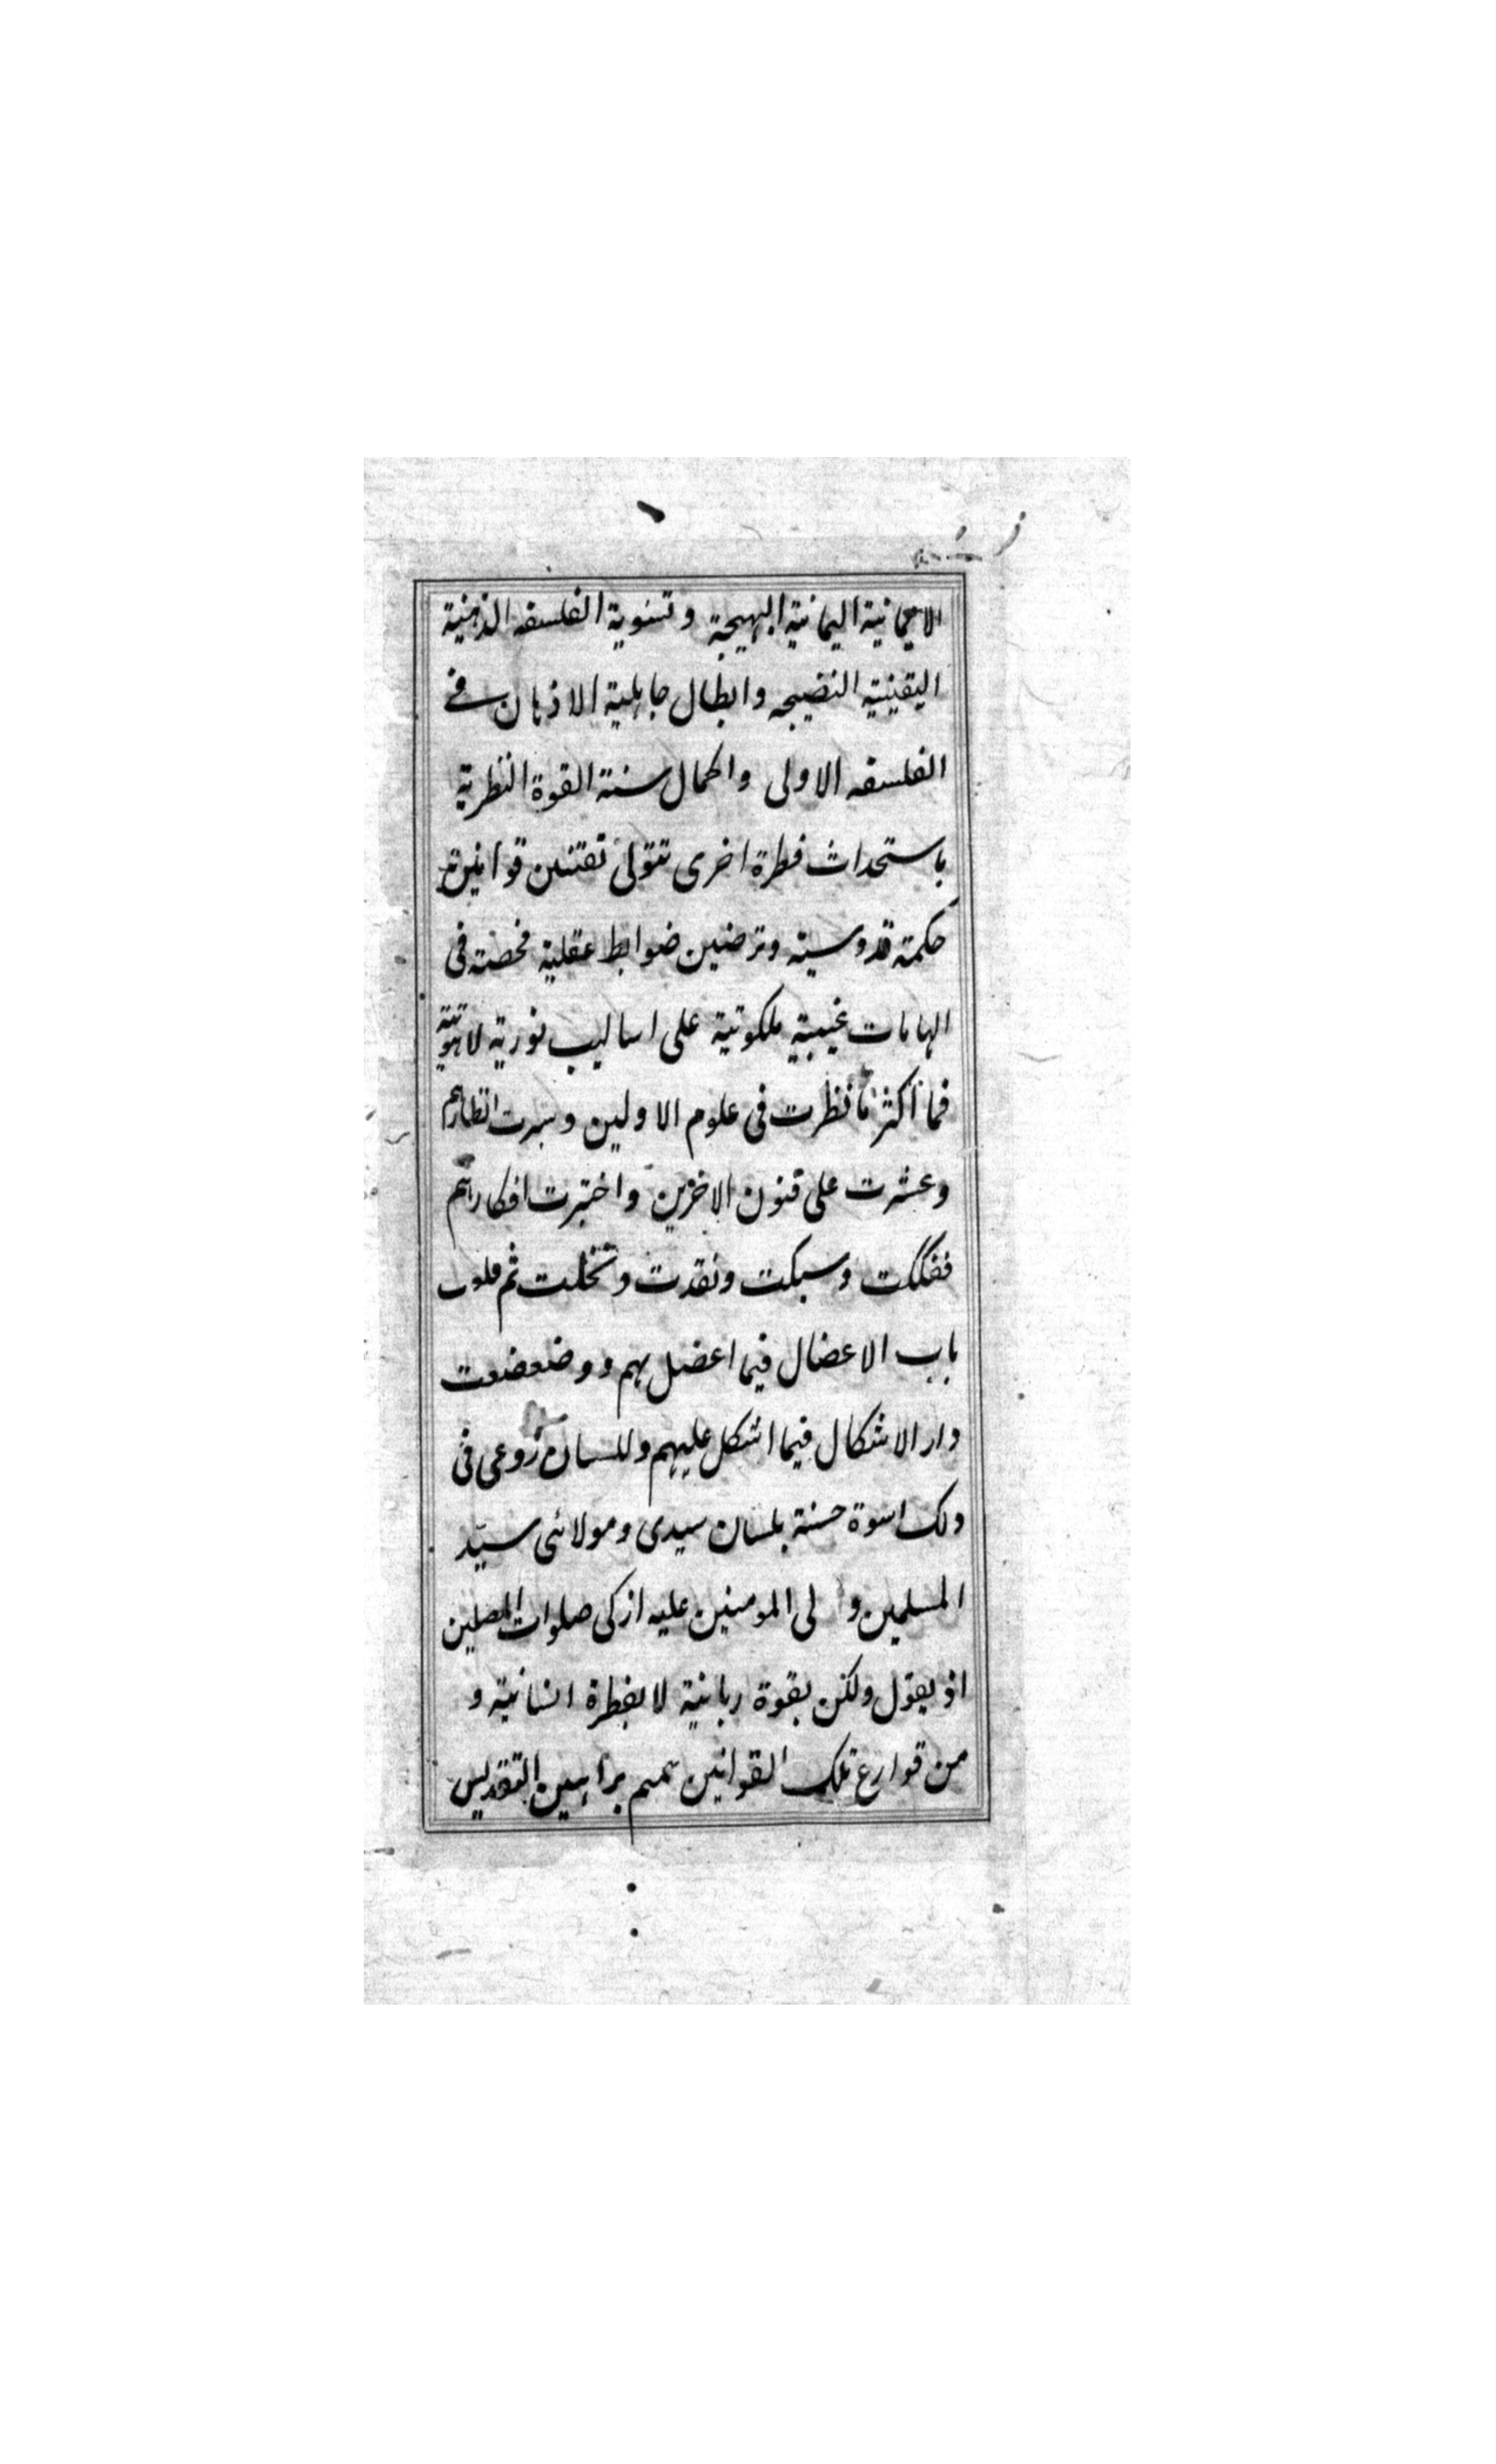 الايمانية اليمانية البهيجة وتسوية الفلسفه الذهنية
اليقينية النضيجه وابطال جاهلية الاذهان في
الفلسفه الاولى واكمال سنة القوة النظرية
باستحداث فطرة اخرى تتولى تقنين قوانين
حكمة قدوسية وترضين ضوابط عقلية فحصته فى
الهامات غيبية ملكوتية على اساليب نورية لاهوتية
فما أكثر ما نظرت فى علوم الاولين وسبرت انظارهم
وعشرت على فنون الاخرين واختبرت افكارهم
ففككت وسبكت ونقدت ونخلت ثم
باب الاعضال فيما اعضل بهم ووضعضعت
دار الاشكال فيما اشكل عليهم وللسان روعى فى
ولك اسوة حسنة بلسان سيدى ومولائى سيّد
المسلمين و لى المومنين عليه ازكى صلوات المصلين
اذ يقول ولكن بقوة ربانية لا بفطرة انسانية و
من قوارع تلك القوانين براهين التقديس